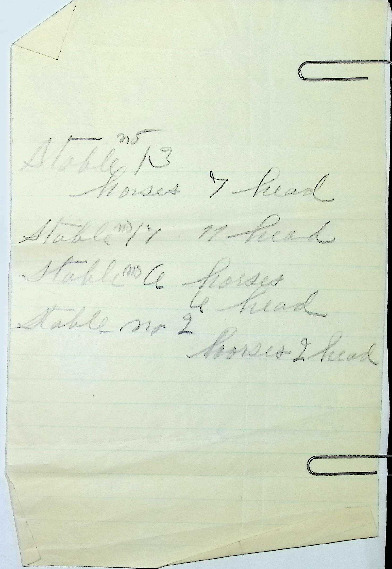 Stable no 13
horses 7 head
Stable no 17 11 head
Stable no 6 horses
6 head
Stable no 2
horses 2 head